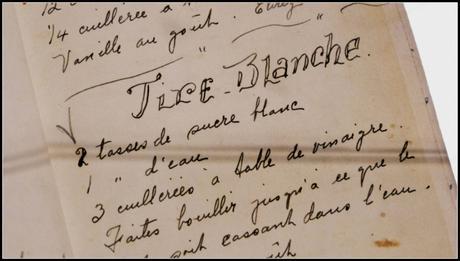 1/4 cuillerée à
Vanille au goût.
Tire-Blanche.
2 tasses de sucre blanc
1 " d'eau
3 cuillerées à table de vinaigre
Faites bouillir jusqu'à ce que le
soit cassant dans l'eau.